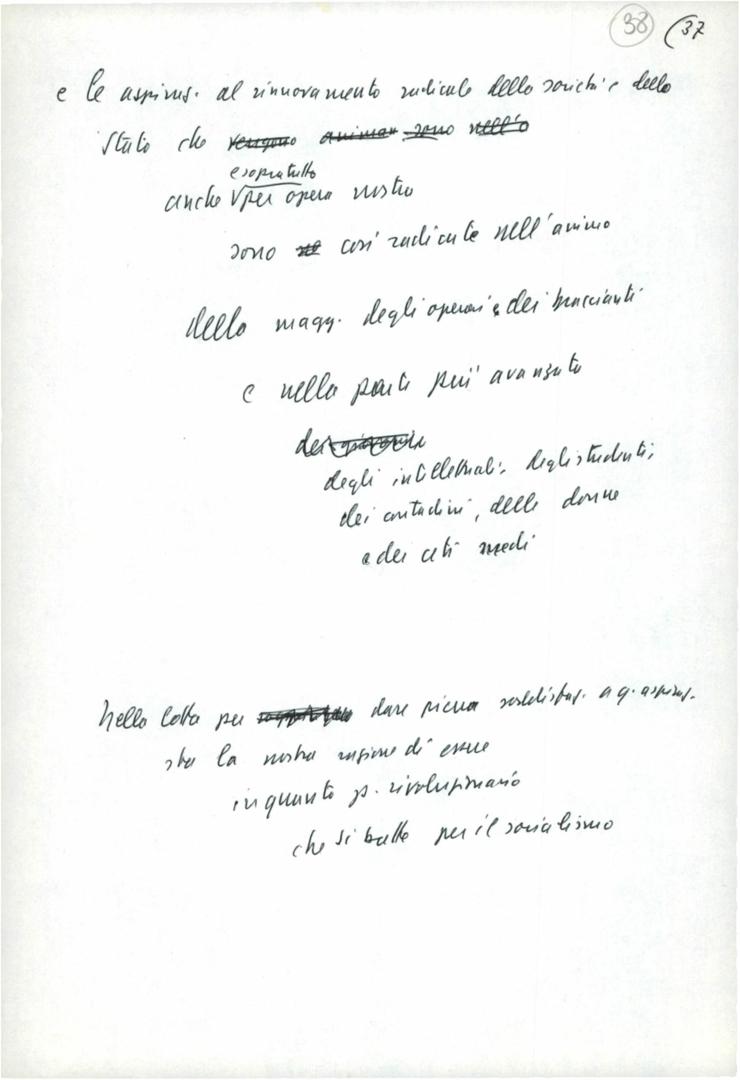 38 (37
e le aspiraz. al rinnovamento radicale della società e dello
Stato che vengono animar sono nell'a
e sopratutto
anche √per opera nostra
sono così radicate nell'animo
della magg. degli operai e dei braccianti
e nella parte più avanzata
dei giovani
degli intellettuali, degli studenti,
dei contadini, delle donne
e dei ceti medi
Nella lotta per dare piena soddisfaz. a q. aspiraz.
sta la nostra ragione di essere
in quanto p. rivoluzionario
che si batte per il socialismo